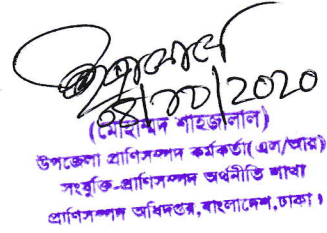 ২৪/১০/২০২০
(মোহাম্মদ শাহজালাল)
উপজেলা প্রাণিসম্পদ কর্মকর্তা(এল/আর)
সংযুক্তি-প্রাণিসম্পদ অর্থনীতি শাখা
প্রাণিসম্পদ অধিদপ্তর,বাংলাদেশ,ঢাকা।